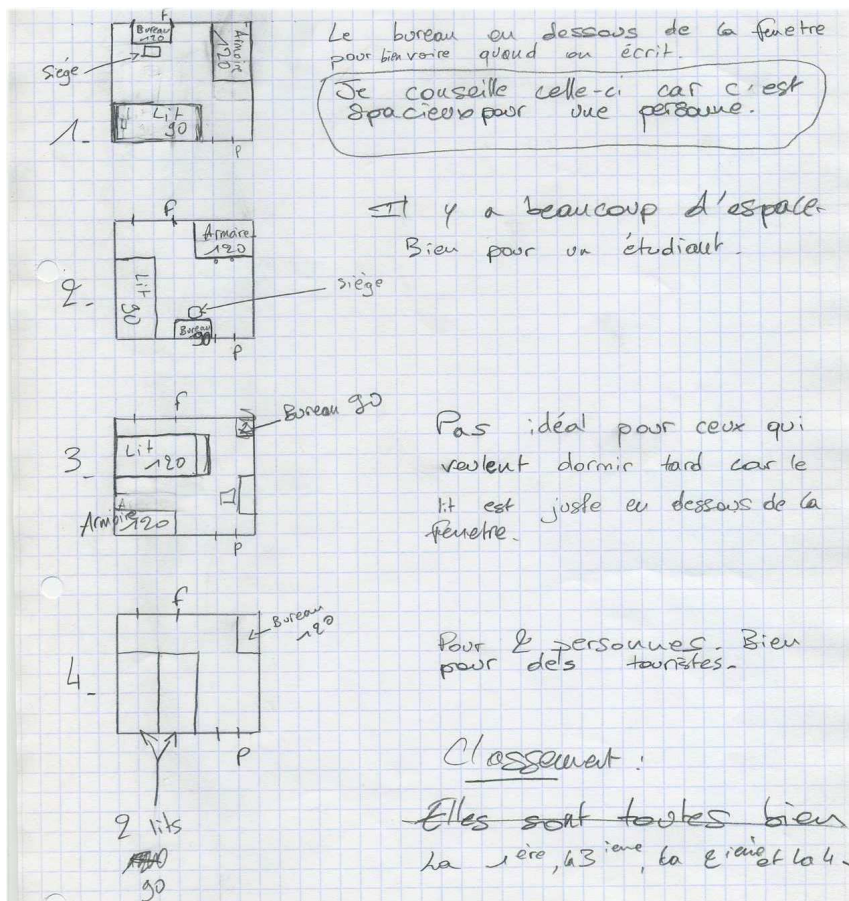 F
Bureau
120
Armoire
120
siège
Lit
90
1-
P
Le bureau en dessous de la fenetre
pour bien voire quand on écrit.
Je conseille celle-ci car c'est
spacieux pour une personne.
F
Armoire
120
2-
Lit
90
siège
Bureau
90
P
Il y a beaucoup d'espace.
Bien pour un étudiant.
f
Bureau 90
3-
Lit
120
A
Armoire
120
P
Pas idéal pour ceux qui
veulent dormir tard car le
lit est juste en dessous de la
fenetre.
f
Bureau
120
4-
P
2 lits
90
Pour 2 personnes. Bien
pour des touristes.
Classement :
Elles sont toutes bien
La 1ère, la 3ieme, la 2ieme et la 4.